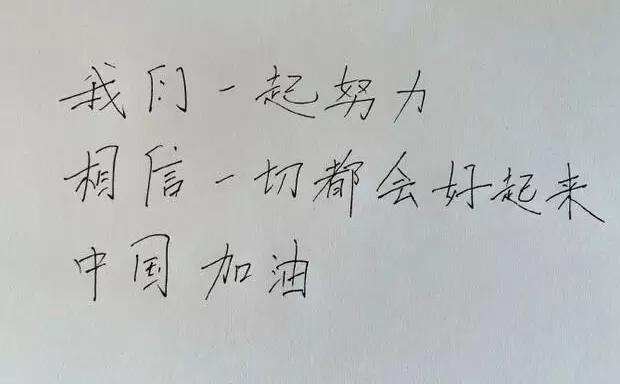 我们一起努力
相信一切都会好起来
中国加油